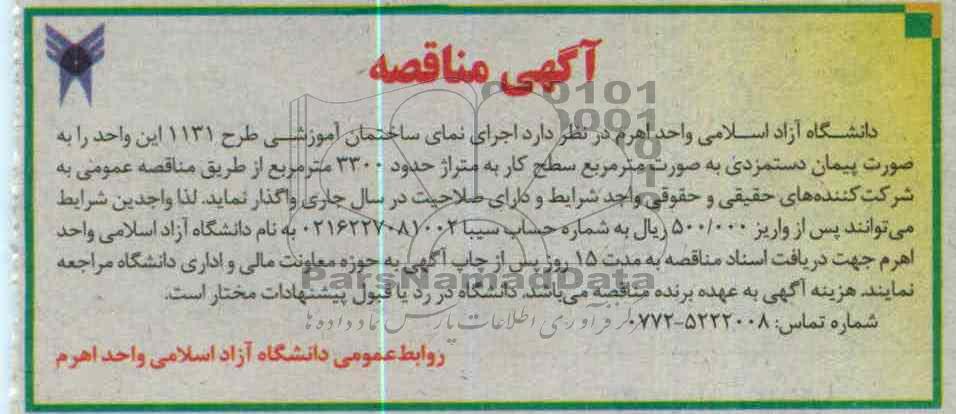 آگهی مناقصه
دانشگاه آزاد اسلامی واحد اهرم در نظر دارد اجرای نمای ساختمان آموزشی طرح ۱۱۳۱ این واحد را به
صورت پیمان دستمزدی به صورت مترمربع سطح کار به متراژ حدود ۳۳۰۰ مترمربع از طریق مناقصه عمومی به
شرکت‌کننده‌های حقیقی و حقوقی واجد شرایط و دارای صلاحیت در سال جاری واگذار نماید. لذا واجدین شرایط
می‌توانند پس از واریز ۵۰۰/۰۰۰ ریال به شماره حساب سیبا ۰۲۱۶۲۲۷۰۸۱۰۰۲ به نام دانشگاه آزاد اسلامی واحد
اهرم جهت دریافت اسناد مناقصه به مدت ۱۵ روز پس از چاپ آگهی به حوزه معاونت مالی و اداری دانشگاه مراجعه
نمایند. هزینه آگهی به عهده برنده مناقصه می‌باشد. دانشگاه در رد یا قبول پیشنهادات مختار است.
شماره تماس: ۵۲۲۲۰۰۸-۰۷۷۲
روابط عمومی دانشگاه آزاد اسلامی واحد اهرم
ParsNamadData